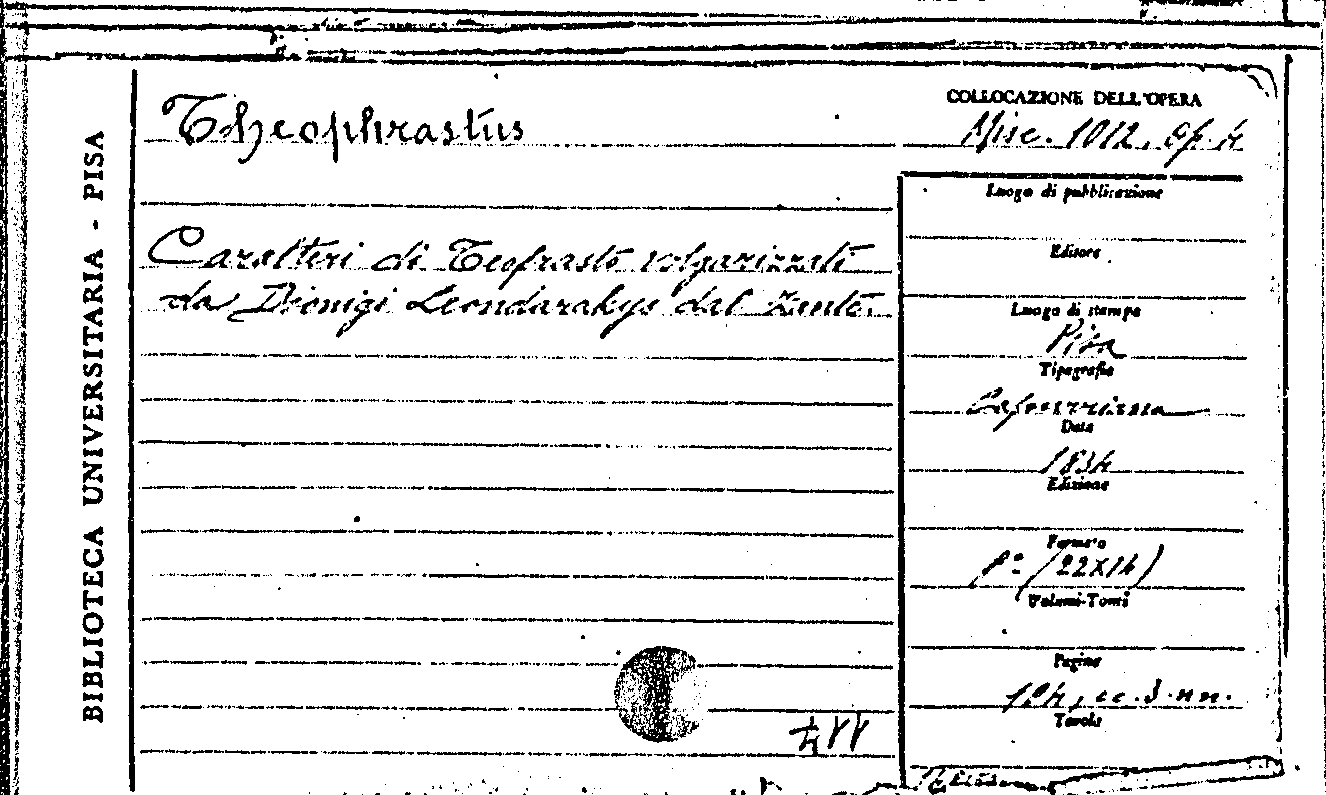 BIBLIOTECA UNIVERSITARIA - PISA
Theophrastus
Caratteri di Teofrasto volgarizzati
da Dionigi Leondarakys dal Zante.
COLLOCAZIONE DELL'OPERA
Misc. 1012. Op. 4
Luogo di pubblicazione
Editore
Luogo di stampa
Pisa
Tipografia
Capurriana
Data
1834
Edizione
Formato
8° (22x14)
Volumi-Tomi
Pagine
cc. 3. nn.
Tavole